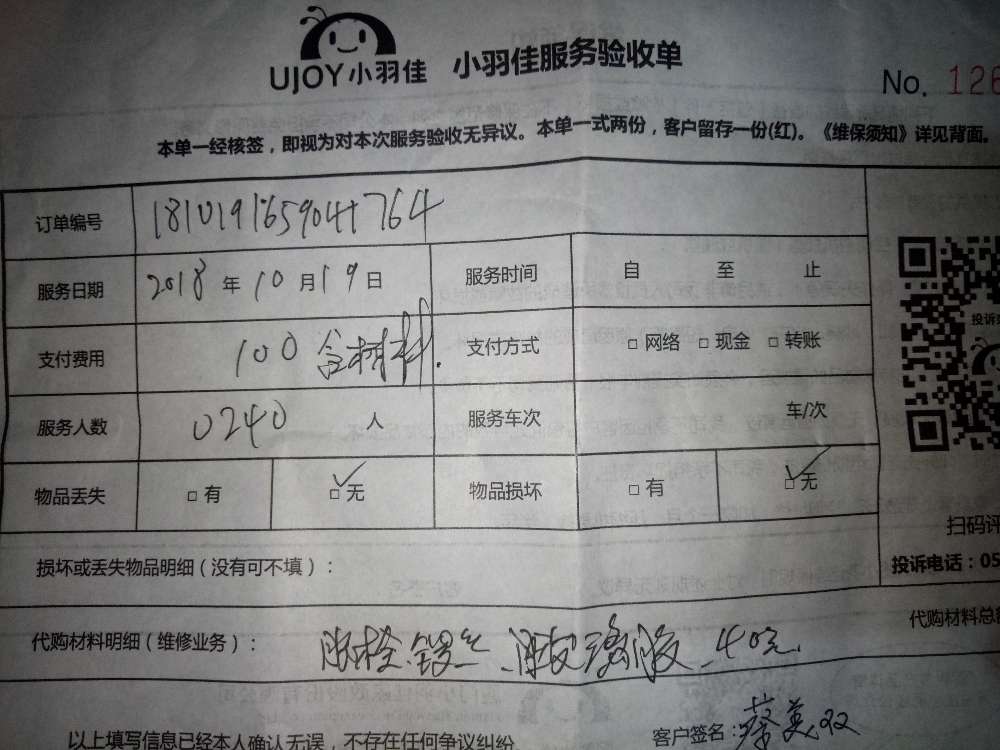 UJOY小羽佳 小羽佳服务验收单
No. 126
本单一经核签，即视为对本次服务验收无异议。本单一式两份，客户留存一份(红)。《维保须知》详见背面。
订单编号 181019165904764
服务日期 2018年10月19日 服务时间 自 至 止
支付费用 100含材料. 支付方式 □网络 □现金 □转账
服务人数 0240 人 服务车次 车/次
物品丢失 □有 □无 物品损坏 □有 □无
扫码评
投诉电话：05
损坏或丢失物品明细（没有可不填）：
代购材料明细（维修业务）： 40元
代购材料总
以上填写信息已经本人确认无误，不存在任何争议纠纷
客户签名：蔡美双